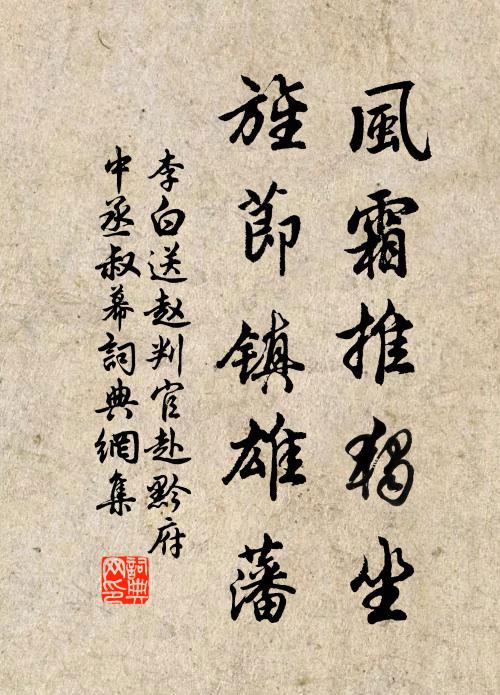 風霜推獨坐
旌節鎮雄藩
李白送赵判官赴黔府
中丞叔幕詞典網集
詞典
网印